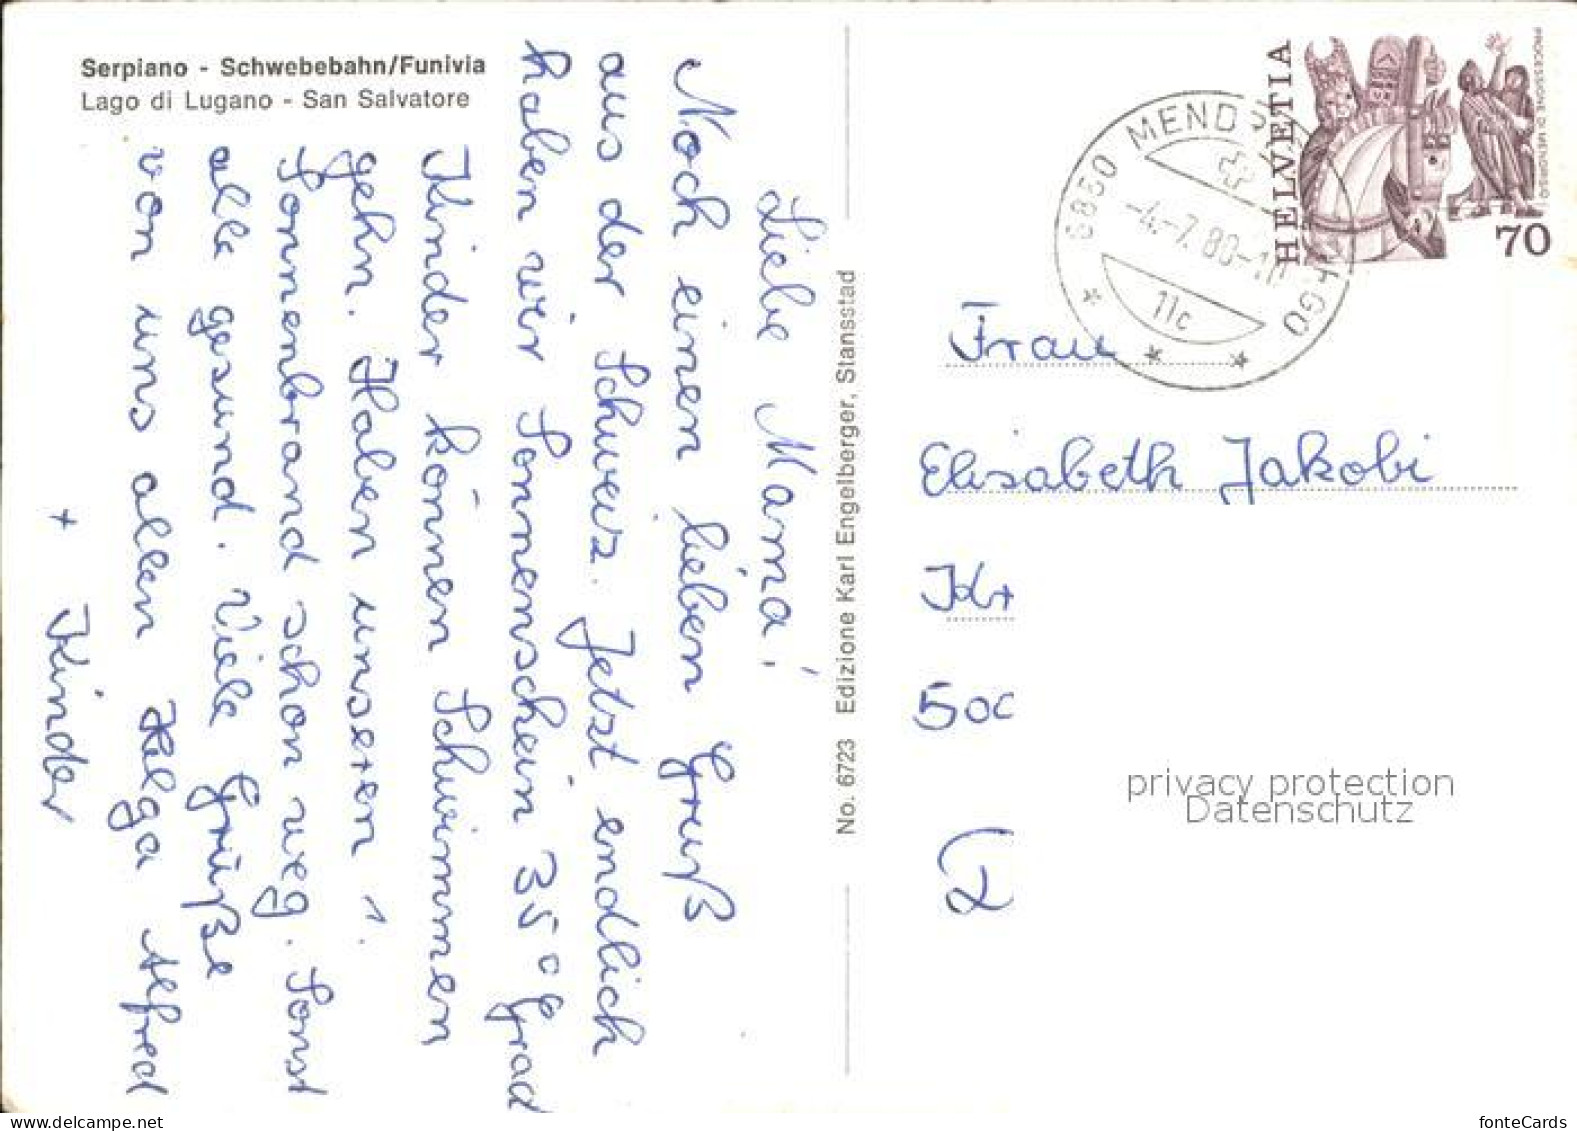 Serpiano - Schwebebahn/Funivia
Lago di Lugano - San Salvatore
Liebe Mama!
Noch einen lieben Gruß
aus der Schweiz. Jetzt endlich
haben wir Sonnenschein 35° Grad
Kinder können Schwimmen
gehn. Haben unseren 1.
Sonnenbrand schon weg. Sonst
alle gesund. Viele Grüße
von uns allen Helga Alfred
+ Kinder
No. 6723 Edizione Karl Engelberger, Stansstad
HELVETIA
PROCESSIONE DI MENDRISIO
70
6850 MENDRISIO BORGO
-4.-7.80-
11c
Frau
Elisabeth Jakobi
50
privacy protection
Datenschutz
www.ansichtskarten-center.de
fonteCards